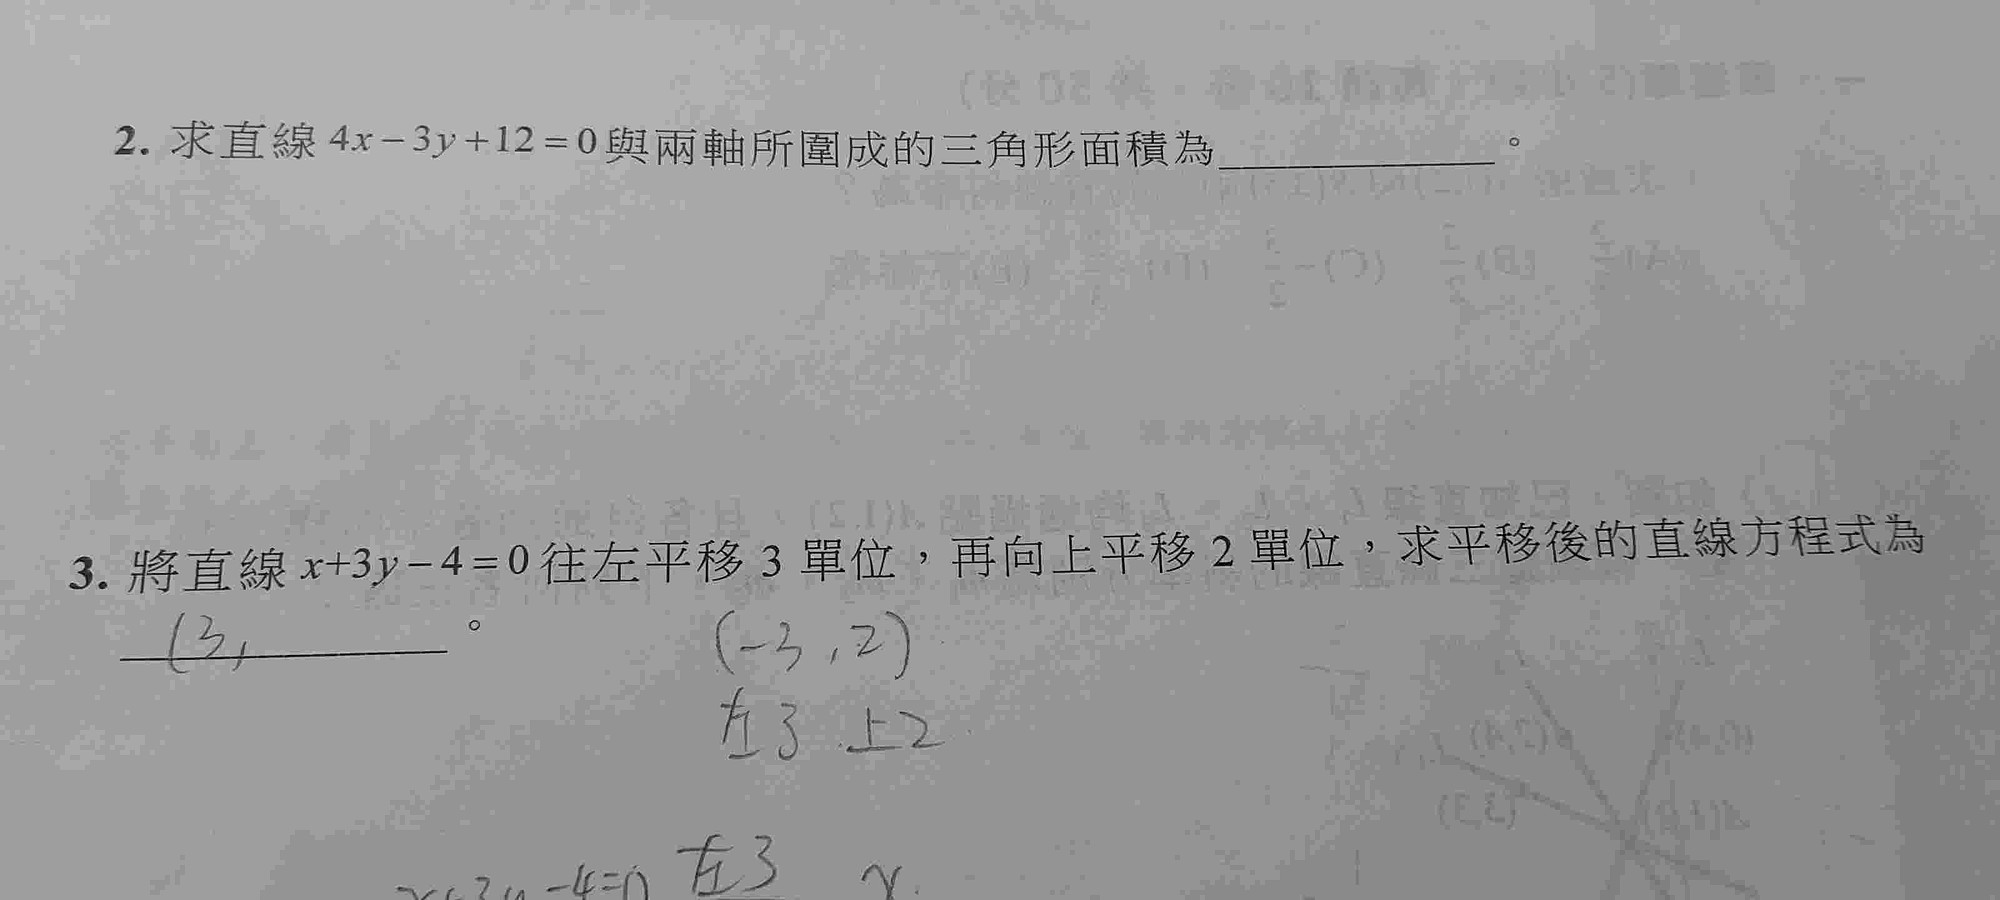 2. 求直線 4x-3y+12=0與兩軸所圍成的三角形面積為__________。
3. 將直線 x+3y-4=0往左平移 3 單位，再向上平移 2 單位，求平移後的直線方程式為
(3, 。
(-3,2)
左3 上2
x+3y-4=0 左3 x